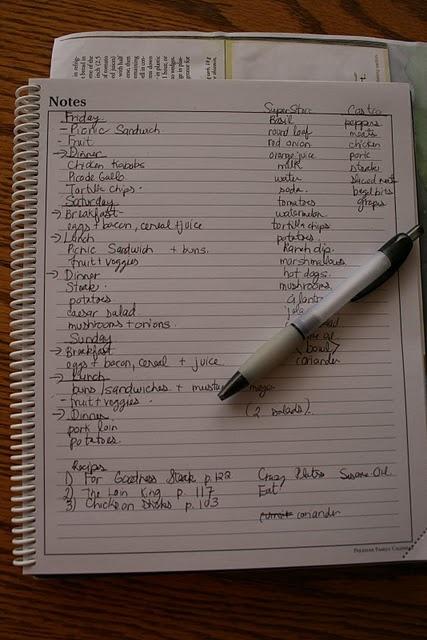 Notes
SuperStore Costco
Friday Basil peppers
- Picnic Sandwich round loaf meats
- fruit red onion chicken
→ Dinner orange juice pork
Chicken Kabobs milk steaks
Picode Gallo water sliced meat
Tortilla Chips. soda. beef bits
Saturday tomatoes grapes
→ Breakfast watermelon
eggs + bacon, cereal + juice tortilla chips
→ Lunch potatoes.
Picnic Sandwich + buns. Ranch dip.
fruit + veggies marshmallows
→ Dinner hot dogs.
Steak. mushrooms
potatoes
caesar salad
mushrooms + onions.
Sunday
→ Breakfast bowl
eggs + bacon, cereal + juice coriander
→ Lunch
buns/sandwiches +
- fruit + veggies. (2 salads)
→ Dinner
pork loin
potatoes.
Recipes
1) For Goodness Steak p.122 Crazy Plates Sesame Oil.
2) The Loin King p. 117 Eat
3) Chicken Sticks p. 103
coriander